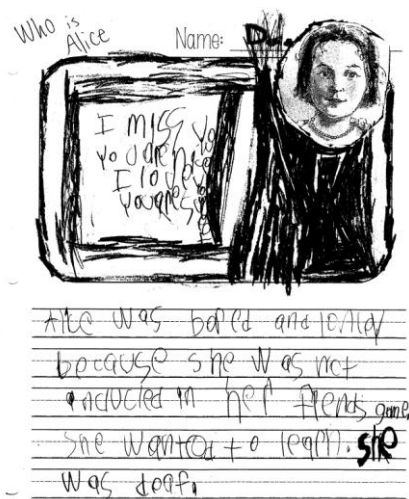 Who is
Alice
Name: Dd.
I miss yo
you are nise
I love y
you are
Alice was bored and lonley
because she was not
inducled in her fiends game.
she wanted to learn. she
was deaf.